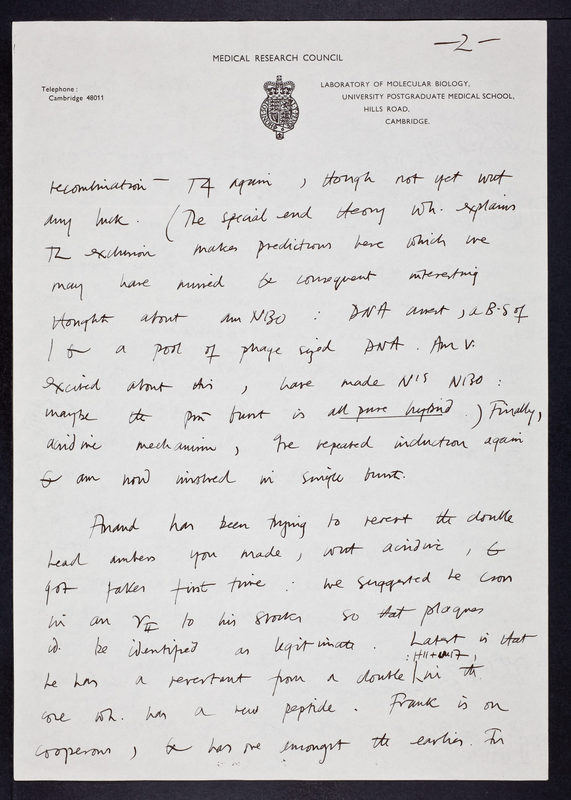 —2—
MEDICAL RESEARCH COUNCIL
Telephone:
Cambridge 48011
LABORATORY OF MOLECULAR BIOLOGY,
UNIVERSITY POSTGRADUATE MEDICAL SCHOOL,
HILLS ROAD,
CAMBRIDGE.
recombination — T4 again, though not yet wut
any luck. (The special end theory wh. explains
T2 exclusion makes predictions here which we
may have missed & consequent interesting
thoughts about am N130 : DNA arrest, a B-S of
1 & a pool of phage sized DNA. Am v.
excited about this, have made N15 N130 :
maybe the pm burst is all pure hybrid.) Finally,
acridine mechanism, I've repeated induction again
& am now involved in single bursts.
Anand has been trying to revert the double
head ambers you made, wut acridine, &
got fakes first time : we suggested he cross
in an rII to his stocks so that plaques
cd. be identified as legitimate. Latest is that
he has a revertant from a double : H11+ in the
one wh. has a new peptide. Frank is on
cooperons, & has one amongst the earlies. I'm